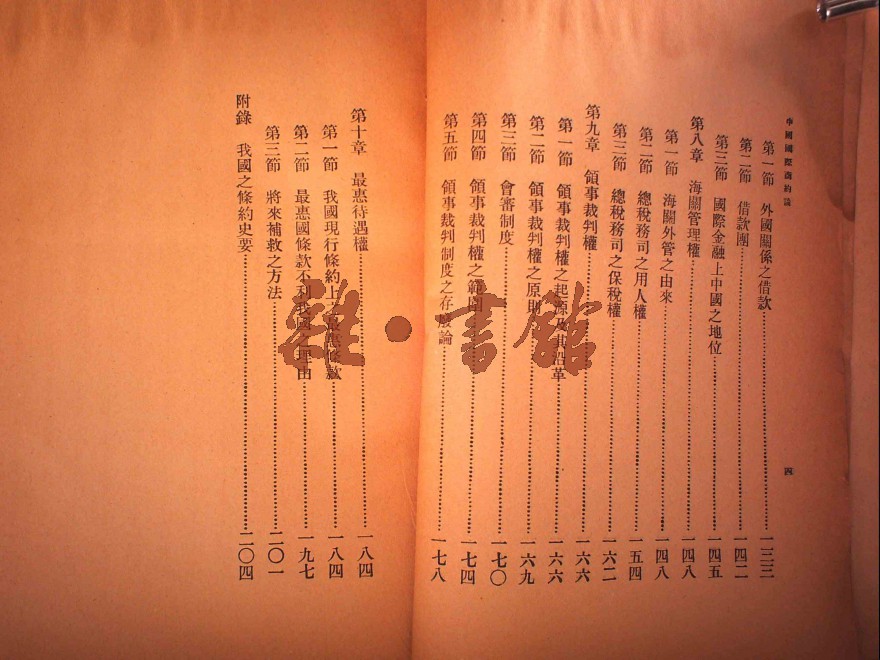 中國國際商約論
四
第一節 外國關係之借款 一三三
第二節 借款團 一四二
第三節 國際金融上中國之地位 一四五
第八章 海關管理權 一四八
第一節 海關外管之由來 一四八
第二節 總稅務司之用人權 一五四
第三節 總稅務司之保稅權 一六二
第九章 領事裁判權 一六六
第一節 領事裁判權之起源及其沿革 一六六
第二節 領事裁判權之原則 一六九
第三節 會審制度 一七〇
第四節 領事裁判權之範圍 一七四
第五節 領事裁判制度之存廢論 一七八
第十章 最惠待遇權 一八四
第一節 我國現行條約上之最惠條款 一八四
第二節 最惠國條款不利我國之理由 一九七
第三節 將來補救之方法 二〇一
附錄 我國之條約史要 二〇四
雜·書館